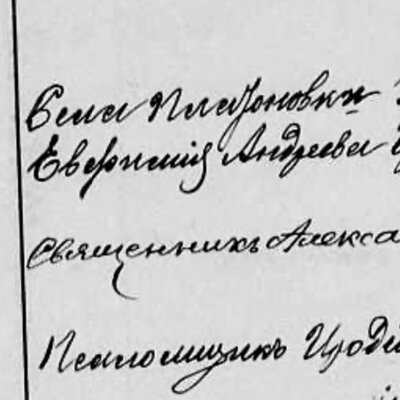 Села Платоновки
Евфимия Андреева
Священникъ Алекса
Псаломщикъ